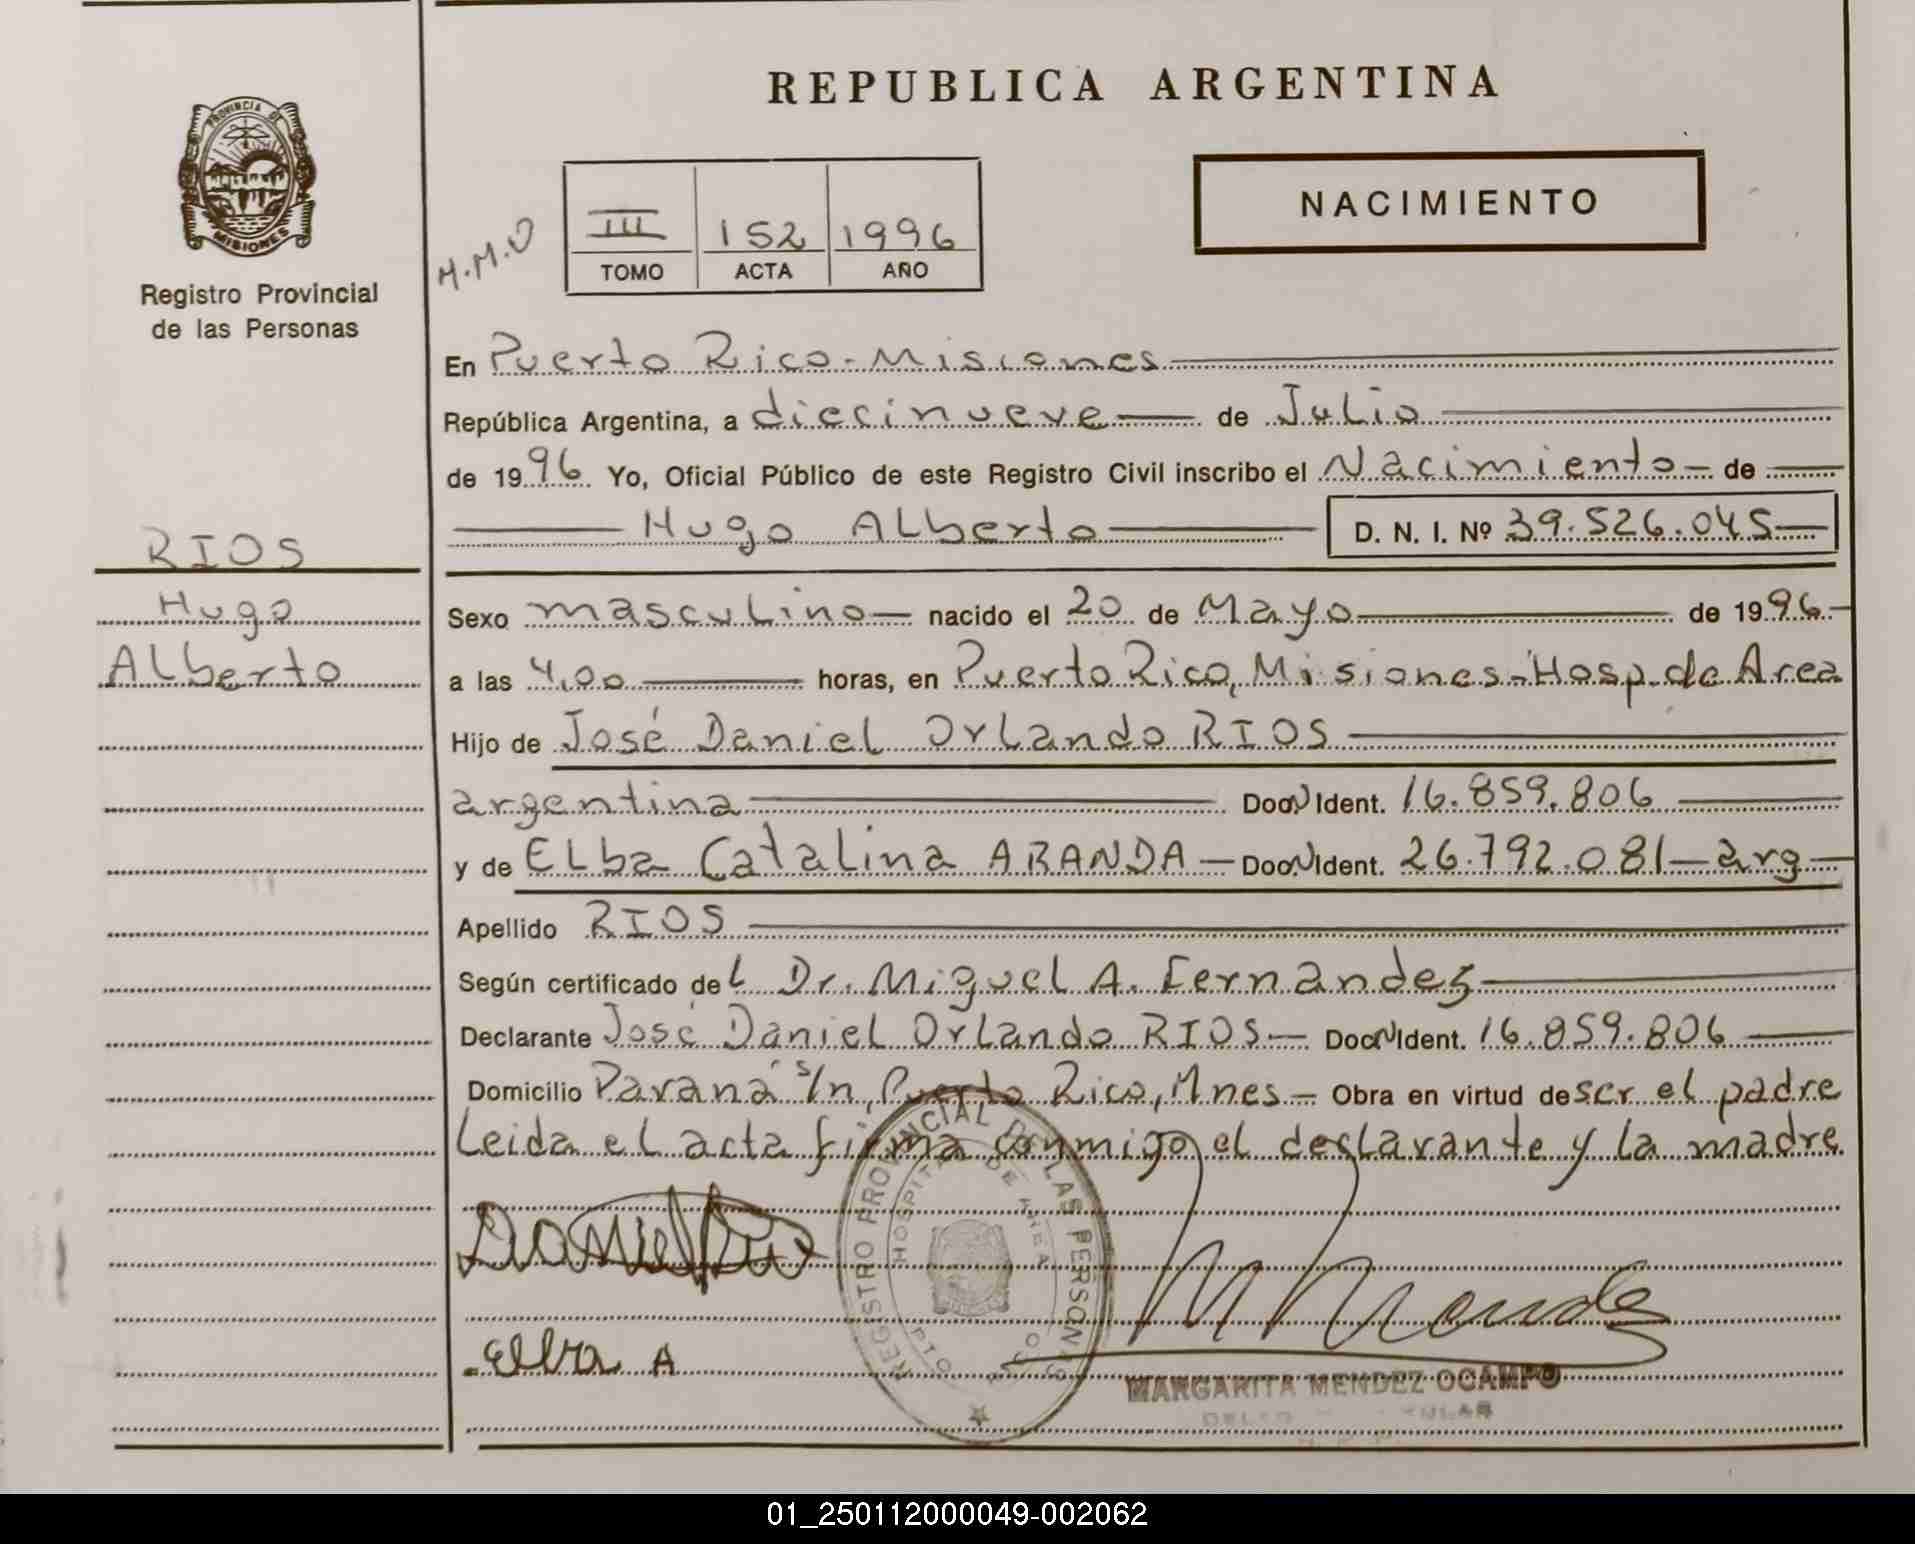 REPUBLICA ARGENTINA
PROVINCIA DE
MISIONES
Registro Provincial
de las Personas
M.M.O
III 152 1996
TOMO ACTA AÑO
NACIMIENTO
En Puerto Rico - Misiones
República Argentina, a diecinueve de Julio
de 1996 Yo, Oficial Público de este Registro Civil inscribo el Nacimiento de
Hugo Alberto D. N. I. Nº 39.526.045
RIOS
Hugo
Alberto
Sexo masculino nacido el 20 de Mayo de 1996
a las 4,00 horas, en Puerto Rico, Misiones - Hosp. de Area
Hijo de José Daniel Orlando RIOS
argentina Doc. N Ident. 16.859.806
y de Elba Catalina ARANDA Doc. N Ident. 26.792.081 - arg
Apellido RIOS
Según certificado del Dr. Miguel A. Fernandez
Declarante José Daniel Orlando RIOS Doc N Ident. 16.859.806
Domicilio Paraná s/n, Puerto Rico, Mnes Obra en virtud de ser el padre
Leida el acta firma conmigo el declarante y la madre
REGISTRO PROVINCIAL DE LAS PERSONAS
HOSPITAL DE AREA
PTO. RICO
Elba A
MARGARITA MENDEZ OCAMPO
01_250112000049-002062